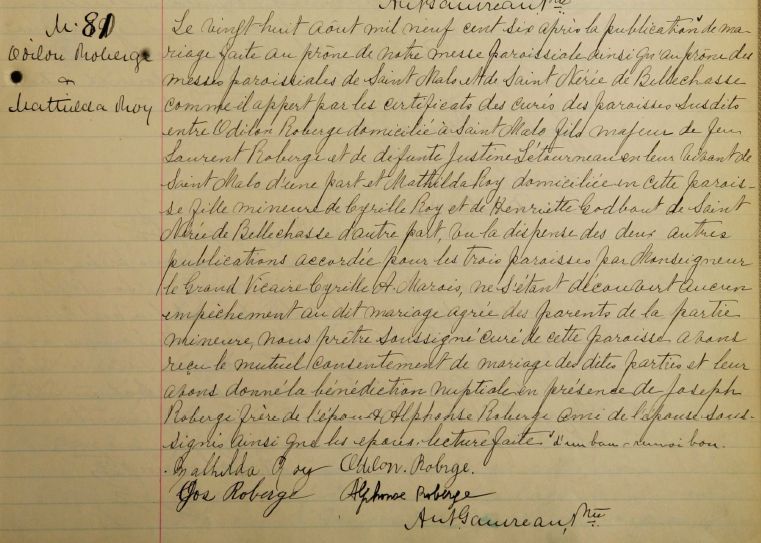 Ant Gauvreau Ptre
M. 89
Odilon Roberge
&
Mathilda Roy
Le vingt huit aout mil neuf cent six après la publication de ma-
riage faite au prône de notre messe paroissiale ainsi qu'au prône des
messes paroissiales de Saint Malo et de Saint Nérée de Bellechasse
comme il appert par les certificats des curés des paroisses susdits
entre Odilon Roberge domicilié à Saint Malo fils majeur de feu
Laurent Roberge et de défunte Justine Létourneau en leur vivant de
Saint Malo d'une part et Mathilda Roy domiciliée en cette parois-
se fille mineure de Cyrille Roy et de Henriette Godbout de Saint
Nérée de Bellechasse d'autre part, vu la dispense des deux autres
publications accordée pour les trois paroisses par Monseigneur
le Grand Vicaire Cyrille A. Marois, ne s'étant découvert aucun
empêchement au dit mariage agréé des parents de la partie
mineure, nous prêtre soussigné curé de cette paroisse avons
reçu le mutuel consentement de mariage des dites parties et leur
avons donné la bénédiction nuptiale en présence de Joseph
Roberge frère de l'époux & Alphonse Roberge ami de l'épouse sous-
signés ainsi que les epoux. lecture faite. d'un ban - renvoi bon.
Mathilda Roy Odilon. Robrge.
Jos Roberge Alphonse Roberge
Ant Gauvreau, Ptre